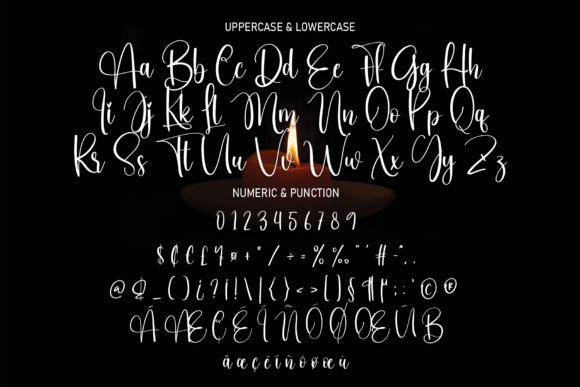 UPPERCASE & LOWERCASE
Aa Bb Cc Dd Ee Ff Gg Hh
Ii Jj Kk Ll Mm Nn Oo Pp Qq
Rr Ss Tt Uu Vv Ww Xx Yy Zz
NUMERIC & PUNCTION
0 1 2 3 4 5 6 7 8 9
$ ¢ € £ ¥ ¤ + * / ÷ = % ‰ " ' # - ^ . ,
@ Ø _ ( ) ¿ ? ¡ ! \ | { } < > [ ] § ¶ ; : ' © ®
Á Æ Ç Ë Î Ñ Ó Ø Œ Ú B
á æ ç ë í ñ ô ø œ ù